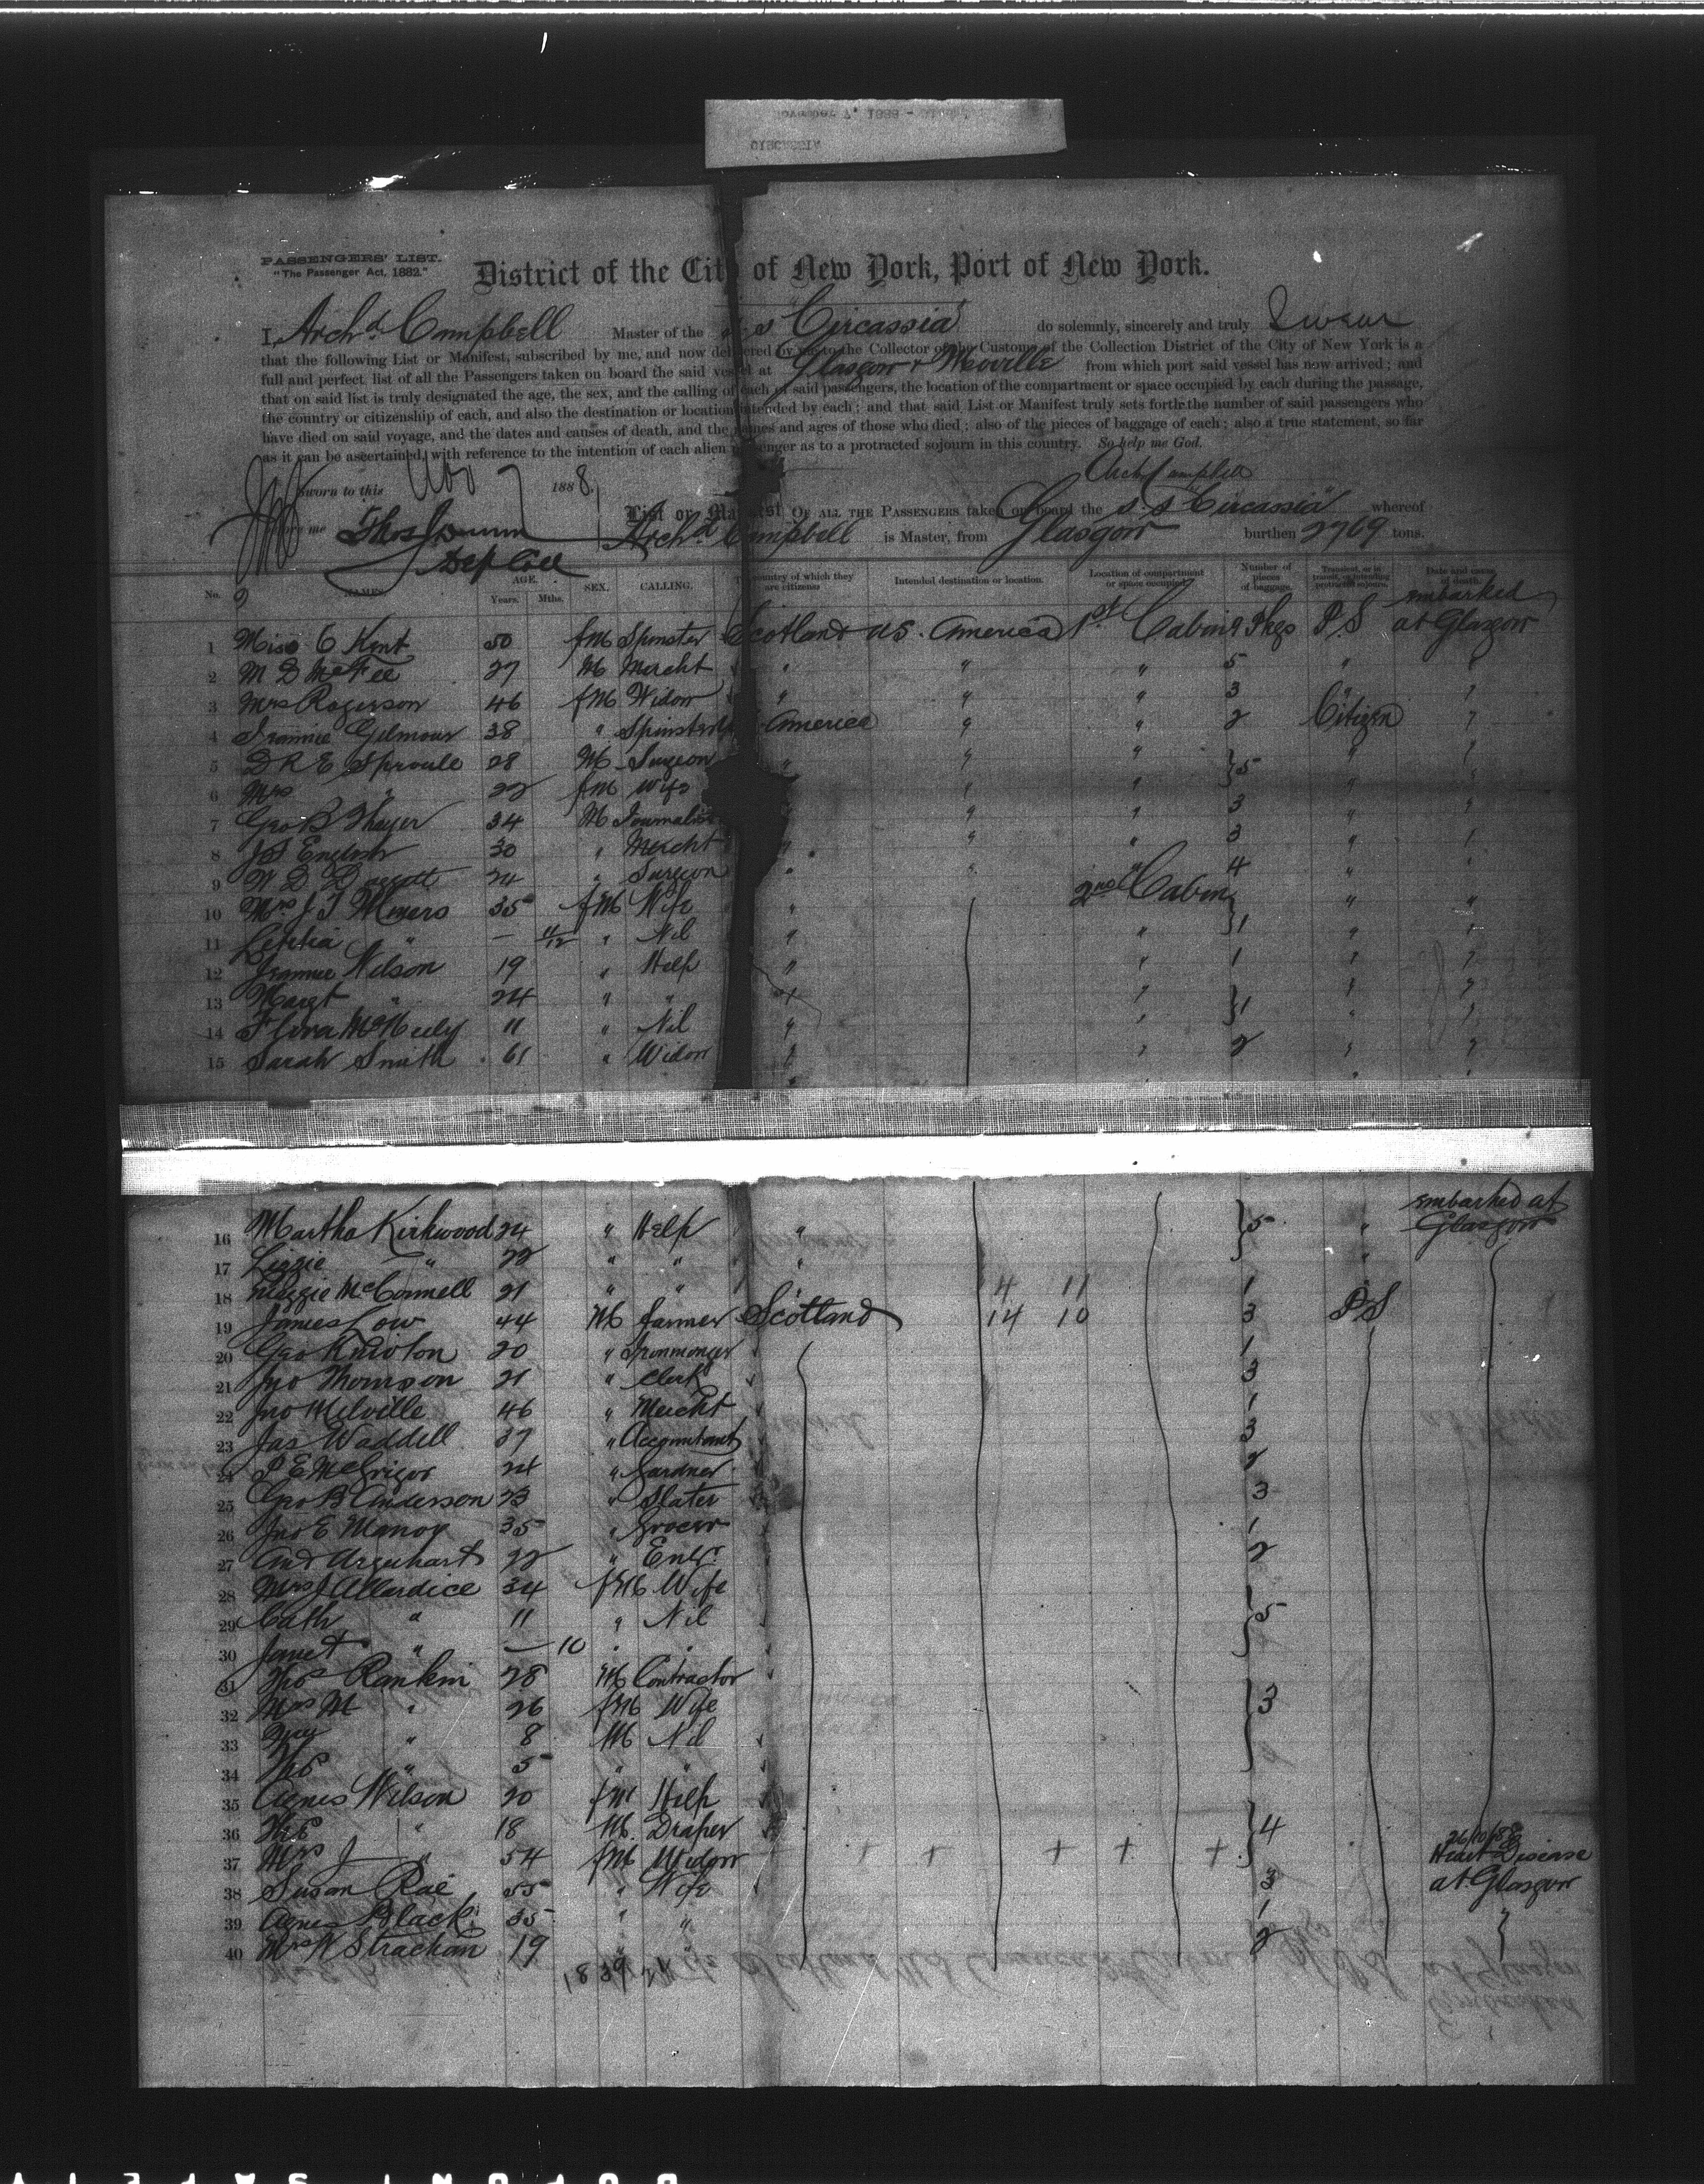 PASSENGERS' LIST.
"The Passenger Act, 1882."
District of the City of New York, Port of New York.
I, Archd Campbell Master of the s.s Circassia do solemnly, sincerely and truly Swear
that the following List or Manifest, subscribed by me, and now delivered by me to the Collector of the Customs of the Collection District of the City of New York is a
full and perfect list of all the Passengers taken on board the said vessel at Glasgow & Moville from which port said vessel has now arrived; and
that on said list is truly designated the age, the sex, and the calling of each of said passengers, the location of the compartment or space occupied by each during the passage,
the country or citizenship of each, and also the destination or location intended by each; and that said List or Manifest truly sets forth the number of said passengers who
have died on said voyage, and the dates and causes of death, and the names and ages of those who died; also of the pieces of baggage of each; also a true statement, so far
as it can be ascertained, with reference to the intention of each alien passenger as to a protracted sojourn in this country. So help me God.
Arch Campbell
Sworn to this Nov 7 1888
before me Dep Coll
List or Manifest OF ALL THE PASSENGERS taken on board the S.S "Circassia" whereof
Archd Campbell is Master, from Glasgow burthen 2769 tons.
No. NAMES. AGE. Years. Mths. SEX. CALLING. The country of which they are citizens Intended destination or location. Location of compartment or space occupied Number of pieces of baggage. Transient, or in transit, or intending protracted sojourn. Date and cause of death.
embarked
1 Miss C Kent 50 fM Spinster Scotland U.S. America 1st Cabin 9 Pkgs P.S at Glasgow
2 M D McFee 27 M Mercht " " " 5 " "
3 Mrs Rogerson 46 fM Widow " " " 3 " "
4 Jeannie Gilmour 38 " Spinster America " " 2 Citizen "
5 D R E Sproule 28 M Surgeon " " " } 5 " "
6 Mrs " 22 fM Wife " " " "
7 Geo B Thayer 34 M Journalist " " 3 " "
8 J S English 30 " Mercht " " " 3 " "
9 W D 24 " Surgeon " " " 4 " "
10 Mrs J T Myers 35 fM Wife " 2nd Cabin } " "
11 Letitia " — 11/12 " Nil " " 1 " "
12 Jeannie Wilson 19 " Help " " 1 " "
13 Margt " 24 " " " " } " "
14 Flora McNeely 11 " Nil " 1 " "
15 Sarah Smith 61 " Widow " " 2 " "
embarked at
16 Martha Kirkwood 24 " Help " } 5 " Glasgow
17 Lizzie " 22 " " " "
18 Maggie McConnell 21 " " " 4 11 1
19 James Low 44 M farmer Scotland 14 10 3 P.S
20 Geo Knivton 20 " Ironmonger 1
21 Jno Thomson 21 " Clerk 3
22 Jno Melville 46 " Mercht 1
23 Jas Waddell 37 " Accountant 3
24 P E McGrigor 24 " Gardner 2
25 Geo B Anderson 23 " Slater 3
26 Jno E Manoy 35 " Grocer 1
27 And Arquhart 22 " Engr. 2
28 Mrs J Allardice 34 fM Wife
29 Cath " 11 " Nil } 5
30 Janet " — 10 " "
31 Thos Rankin 28 M Contractor
32 Mrs M " 26 fM Wife } 3
33 " 8 M Nil
34 Thos " 5 " "
35 Agnes Wilson 20 fM Help
36 " 18 M Draper } 4 26/10/88
37 Mrs J " 54 fM Widow + + + + + Heart Disease
38 Susan Rae 55 " Wife 3 at Glasgow
39 Agnes Black 35 " " 1 "
40 Mrs W Strachan 19 " " 2